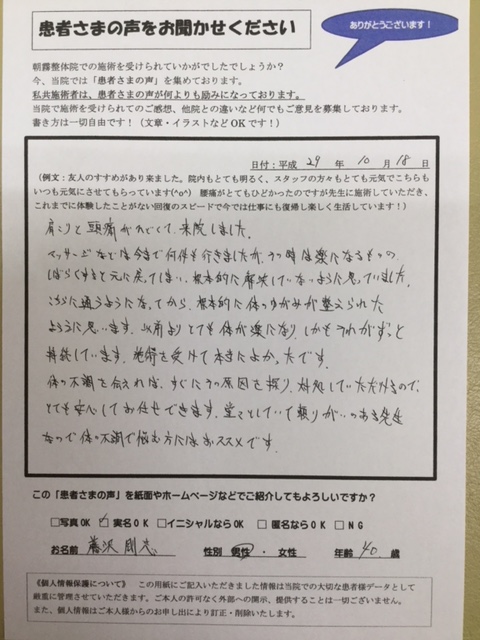 患者さまの声をお聞かせください
ありがとうございます！
朝霧整体院での施術を受けられていかがでしたでしょうか？
今、当院では「患者さまの声」を集めております。
私共施術者は、患者さまの声が何よりも励みになっております。
当院で施術を受けられてのご感想、他院との違いなど何でもご意見を募集しております。
書き方は一切自由です！（文章・イラストなどOKです！）
日付：平成 29 年 10 月 18 日
（例文：友人のすすめがあり来ました。院内もとても明るく、スタッフの方々もとても元気でこちらも
いつも元気にさせてもらっています(^o^) 腰痛がとてもひどかったのですが先生に施術していただき、
これまでに体験したことがない回復のスピードで今では仕事にも復帰し楽しく生活しています！）
肩こりと頭痛がひどくて、来院しました。
マッサージなどは今まで何件も行きましたが、その時は楽になるものの
しばらくすると元に戻ってしまい、根本的に解決していないように思っていました。
こちらに通うようになってから、根本的に体のゆがみが整えられた
ように思います。以前よりとても体が楽になり、しかもそれがずっと
持続しています。施術を受けて本当によかったです。
体の不調を伝えれば、すぐにその原因を探り、対処していただけるので、
とても安心してお任せできます。堂々としていて頼りがいのある先生
なので体の不調で悩む方にはおススメです。
この「患者さまの声」を紙面やホームページなどでご紹介してもよろしいですか？
□写真OK ☑実名OK □イニシャルならOK □匿名ならOK □NG
お名前 藤沢 剛志 性別 男性 ・ 女性 年齢 40 歳
《個人情報保護について》 この用紙にご記入いただきました情報は当院での大切な患者様データとして
厳重に管理させていただきます。ご本人の許可なく外部への開示、提供することは一切ございません。
また、個人情報はご本人様からのお申し出により訂正・削除いたします。